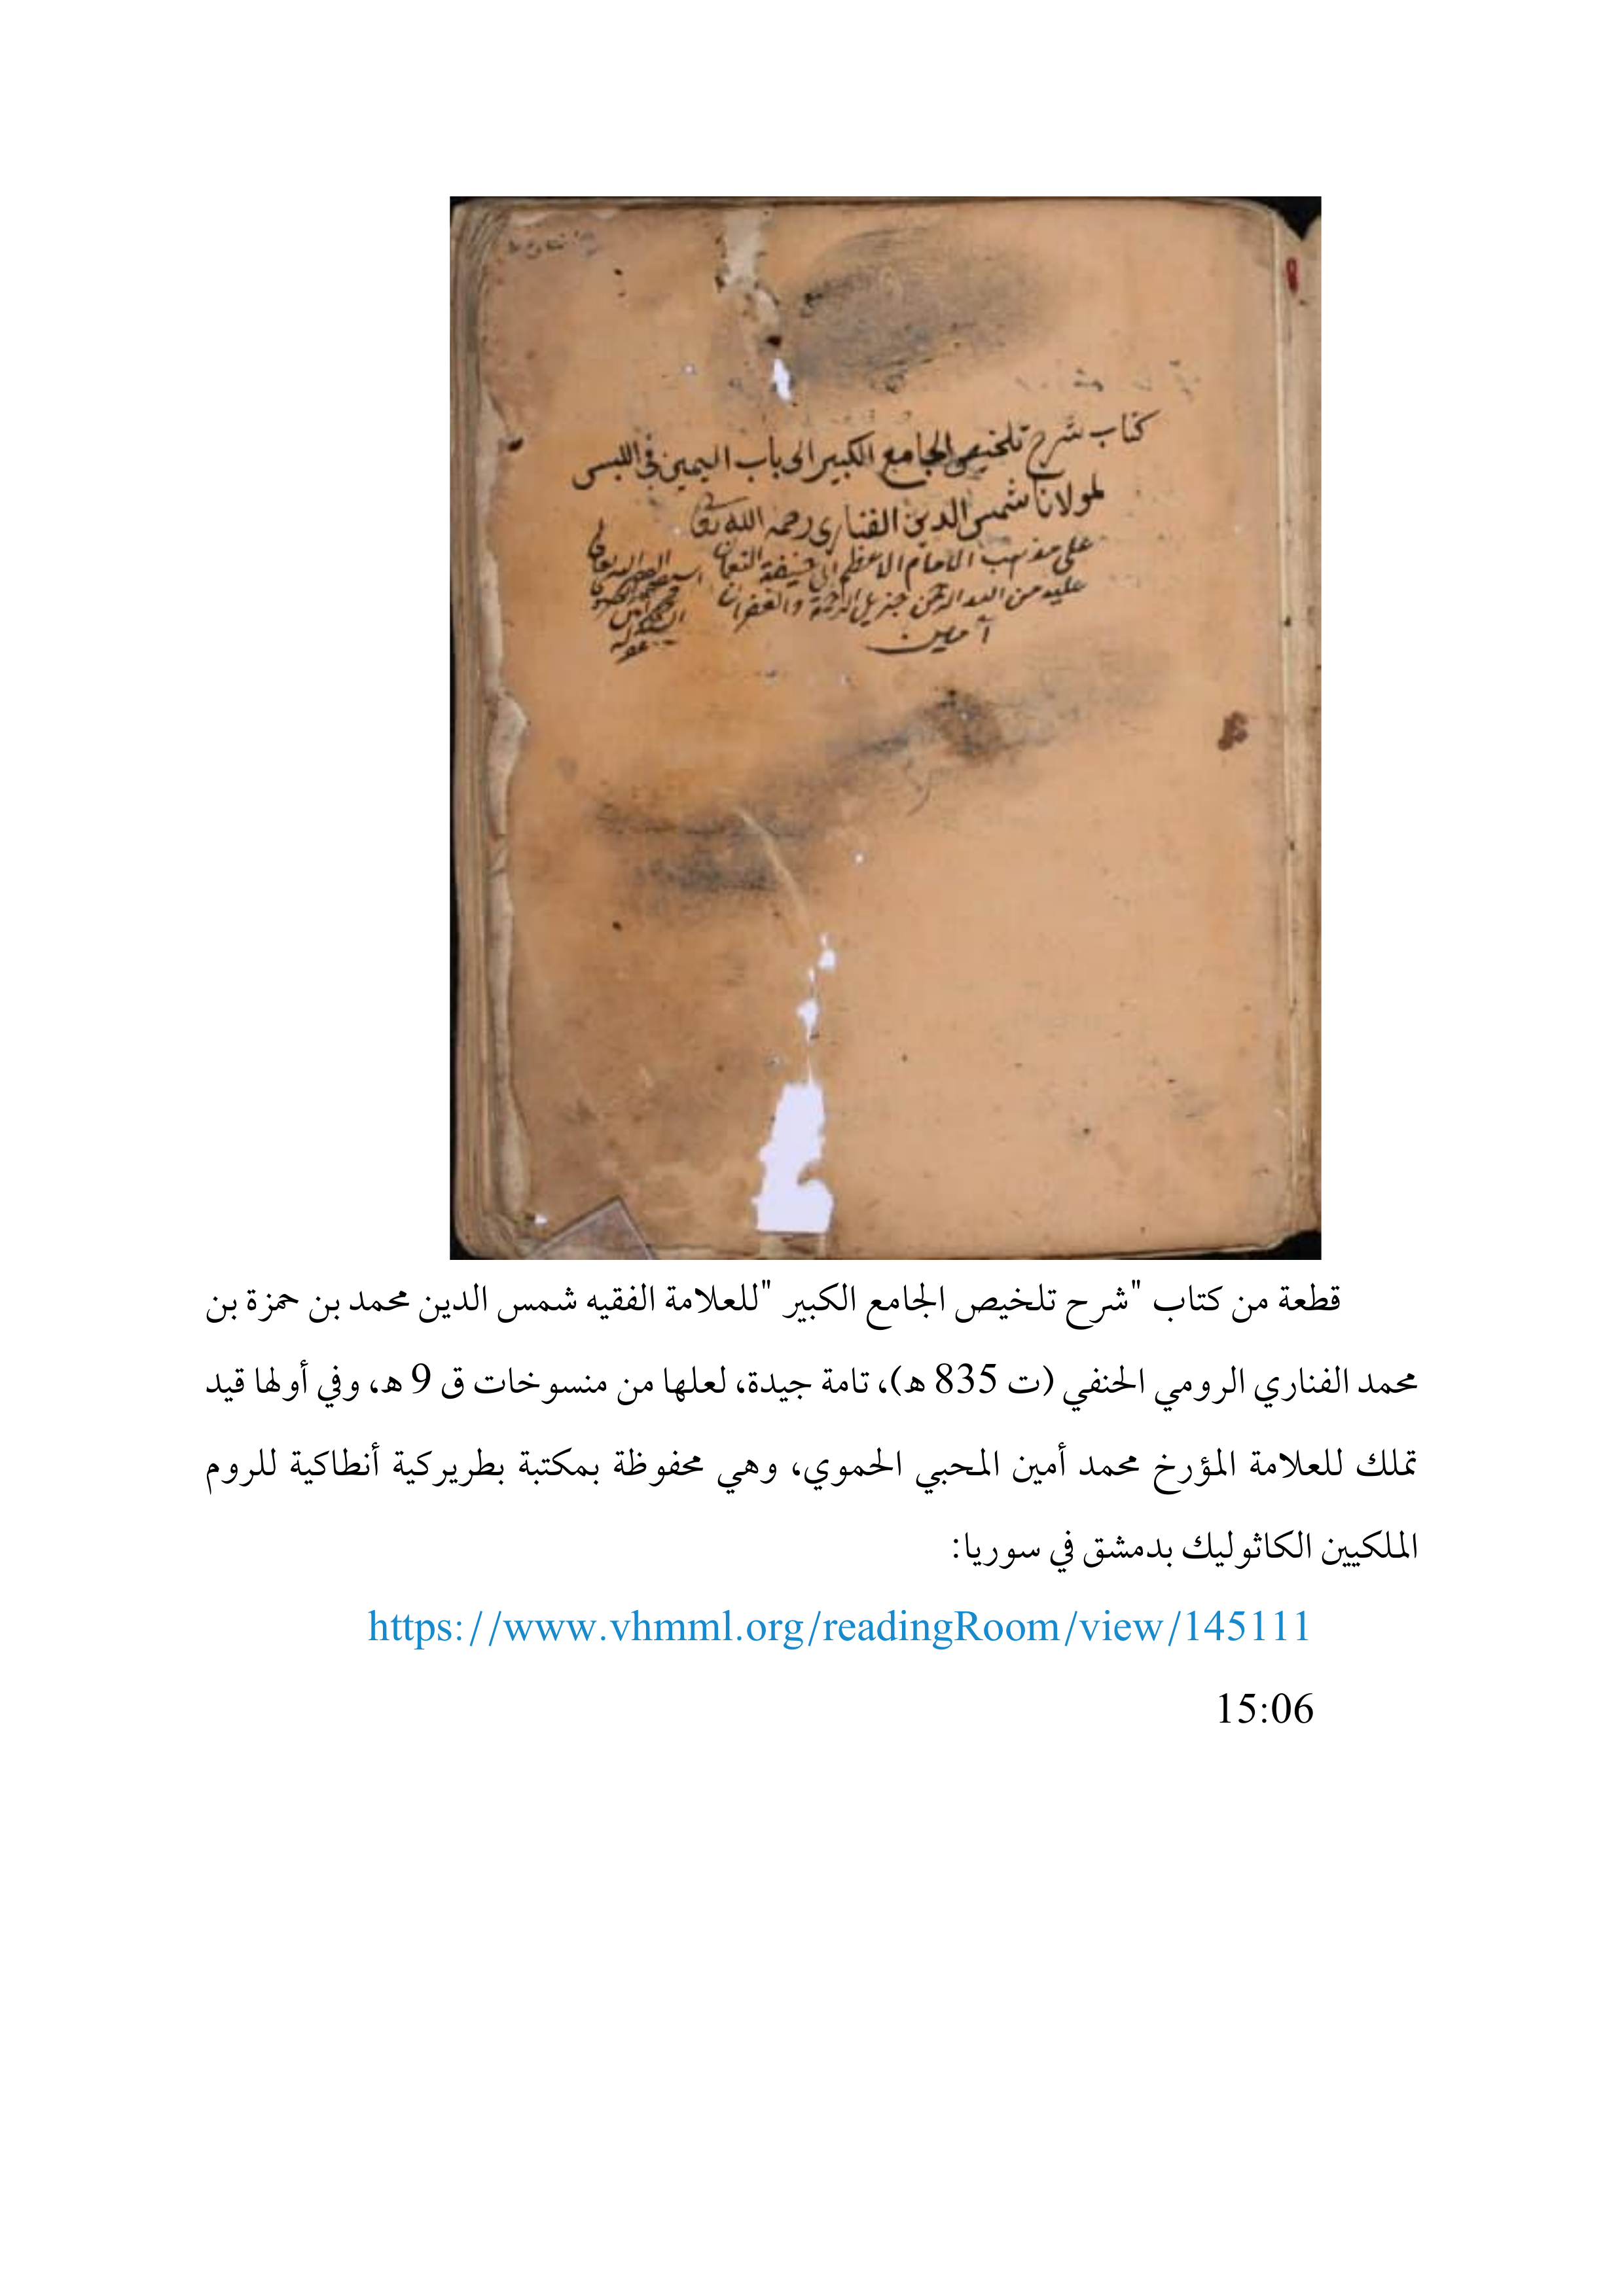 كتاب شرح تلخيص الجامع الكبير الى باب اليمين في اللبس
لمولانا شمس الدين الفناري رحمه الله تعالى
على مذهب الامام الاعظم ابي حنيفة النعمان
عليه من الله الرحمن جزيل الرحمة والغفران
آمين
قطعة من كتاب "شرح تلخيص الجامع الكبير "للعلامة الفقيه شمس الدين محمد بن حمزة بن
محمد الفناري الرومي الحنفي (ت 835 هـ)، تامة جيدة، لعلها من منسوخات ق 9 هـ، وفي أولها قيد
تملك للعلامة المؤرخ محمد أمين المحبي الحموي، وهي محفوظة بمكتبة بطريركية أنطاكية للروم
الملكيين الكاثوليك بدمشق في سوريا:
https://www.vhmml.org/readingRoom/view/145111
15:06